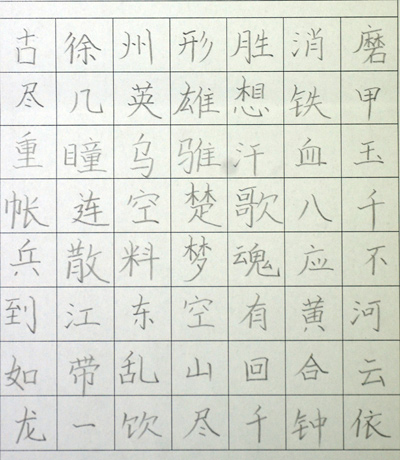 古徐州形胜消磨
尽几英雄想铁甲
重瞳乌骓汗血玉
帐连空楚歌八千
兵散料梦魂应不
到江东空有黄河
如带乱山回合云
龙一饮尽千钟依